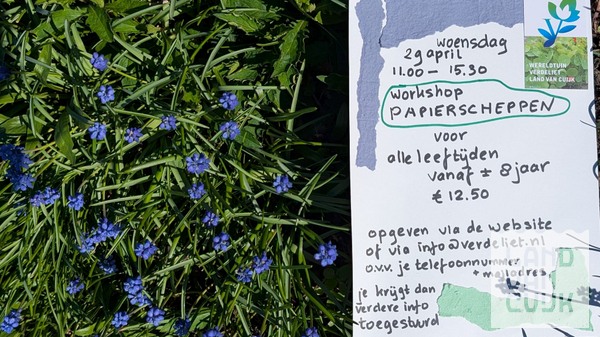 woensdag
29 april
11.00 – 15.30
workshop
PAPIERSCHEPPEN
voor
alle leeftijden
vanaf ± 8 jaar
€ 12.50
opgeven via de website
of via info@verdeliet.nl
o.v.v. je telefoonnummer
+ mailadres
je krijgt dan
verdere info
toegestuurd
WERELDTUIN
VERDELIET
LAND VAN CUIJK
LAND
VAN
CUIJK